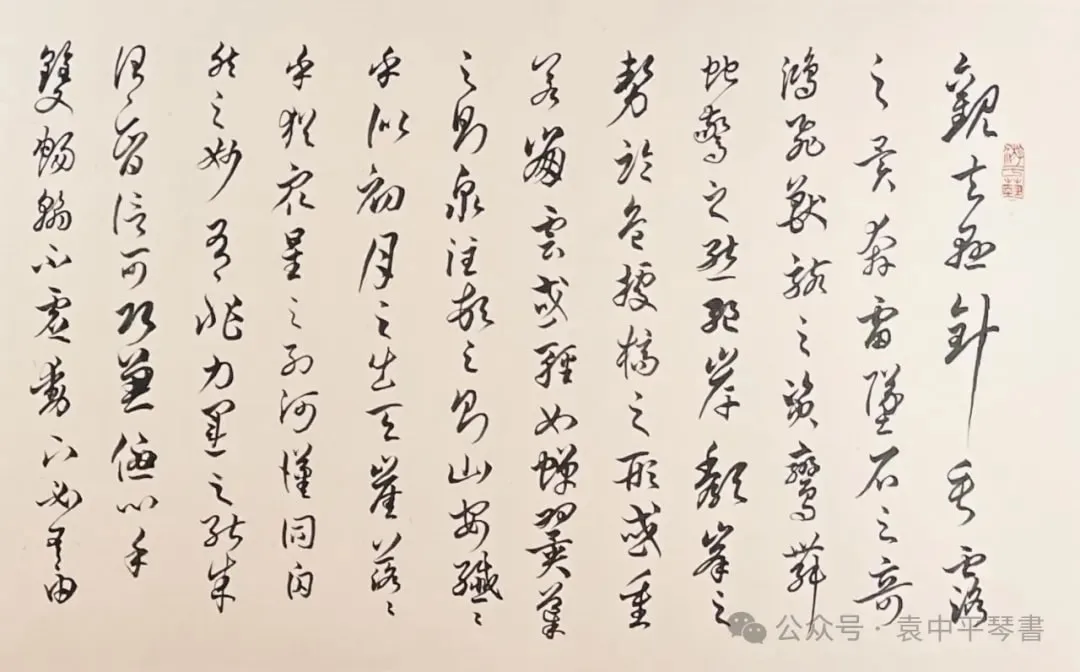 觀夫懸針垂露
之異奔雷墜石之奇
鴻飛獸駭之資鸞舞
蛇驚之態絕岸頹峯之
勢臨危據槁之形或重
若崩雲或輕如蟬翼導
之則泉注頓之則山安纖〻
乎似初月之出天崖落〻
乎猶衆星之列河漢同自
然之妙有非力運之能成
謂智信可巧兼優心手
雙暢翰不虛動下必有由
公众号·袁中平琴書